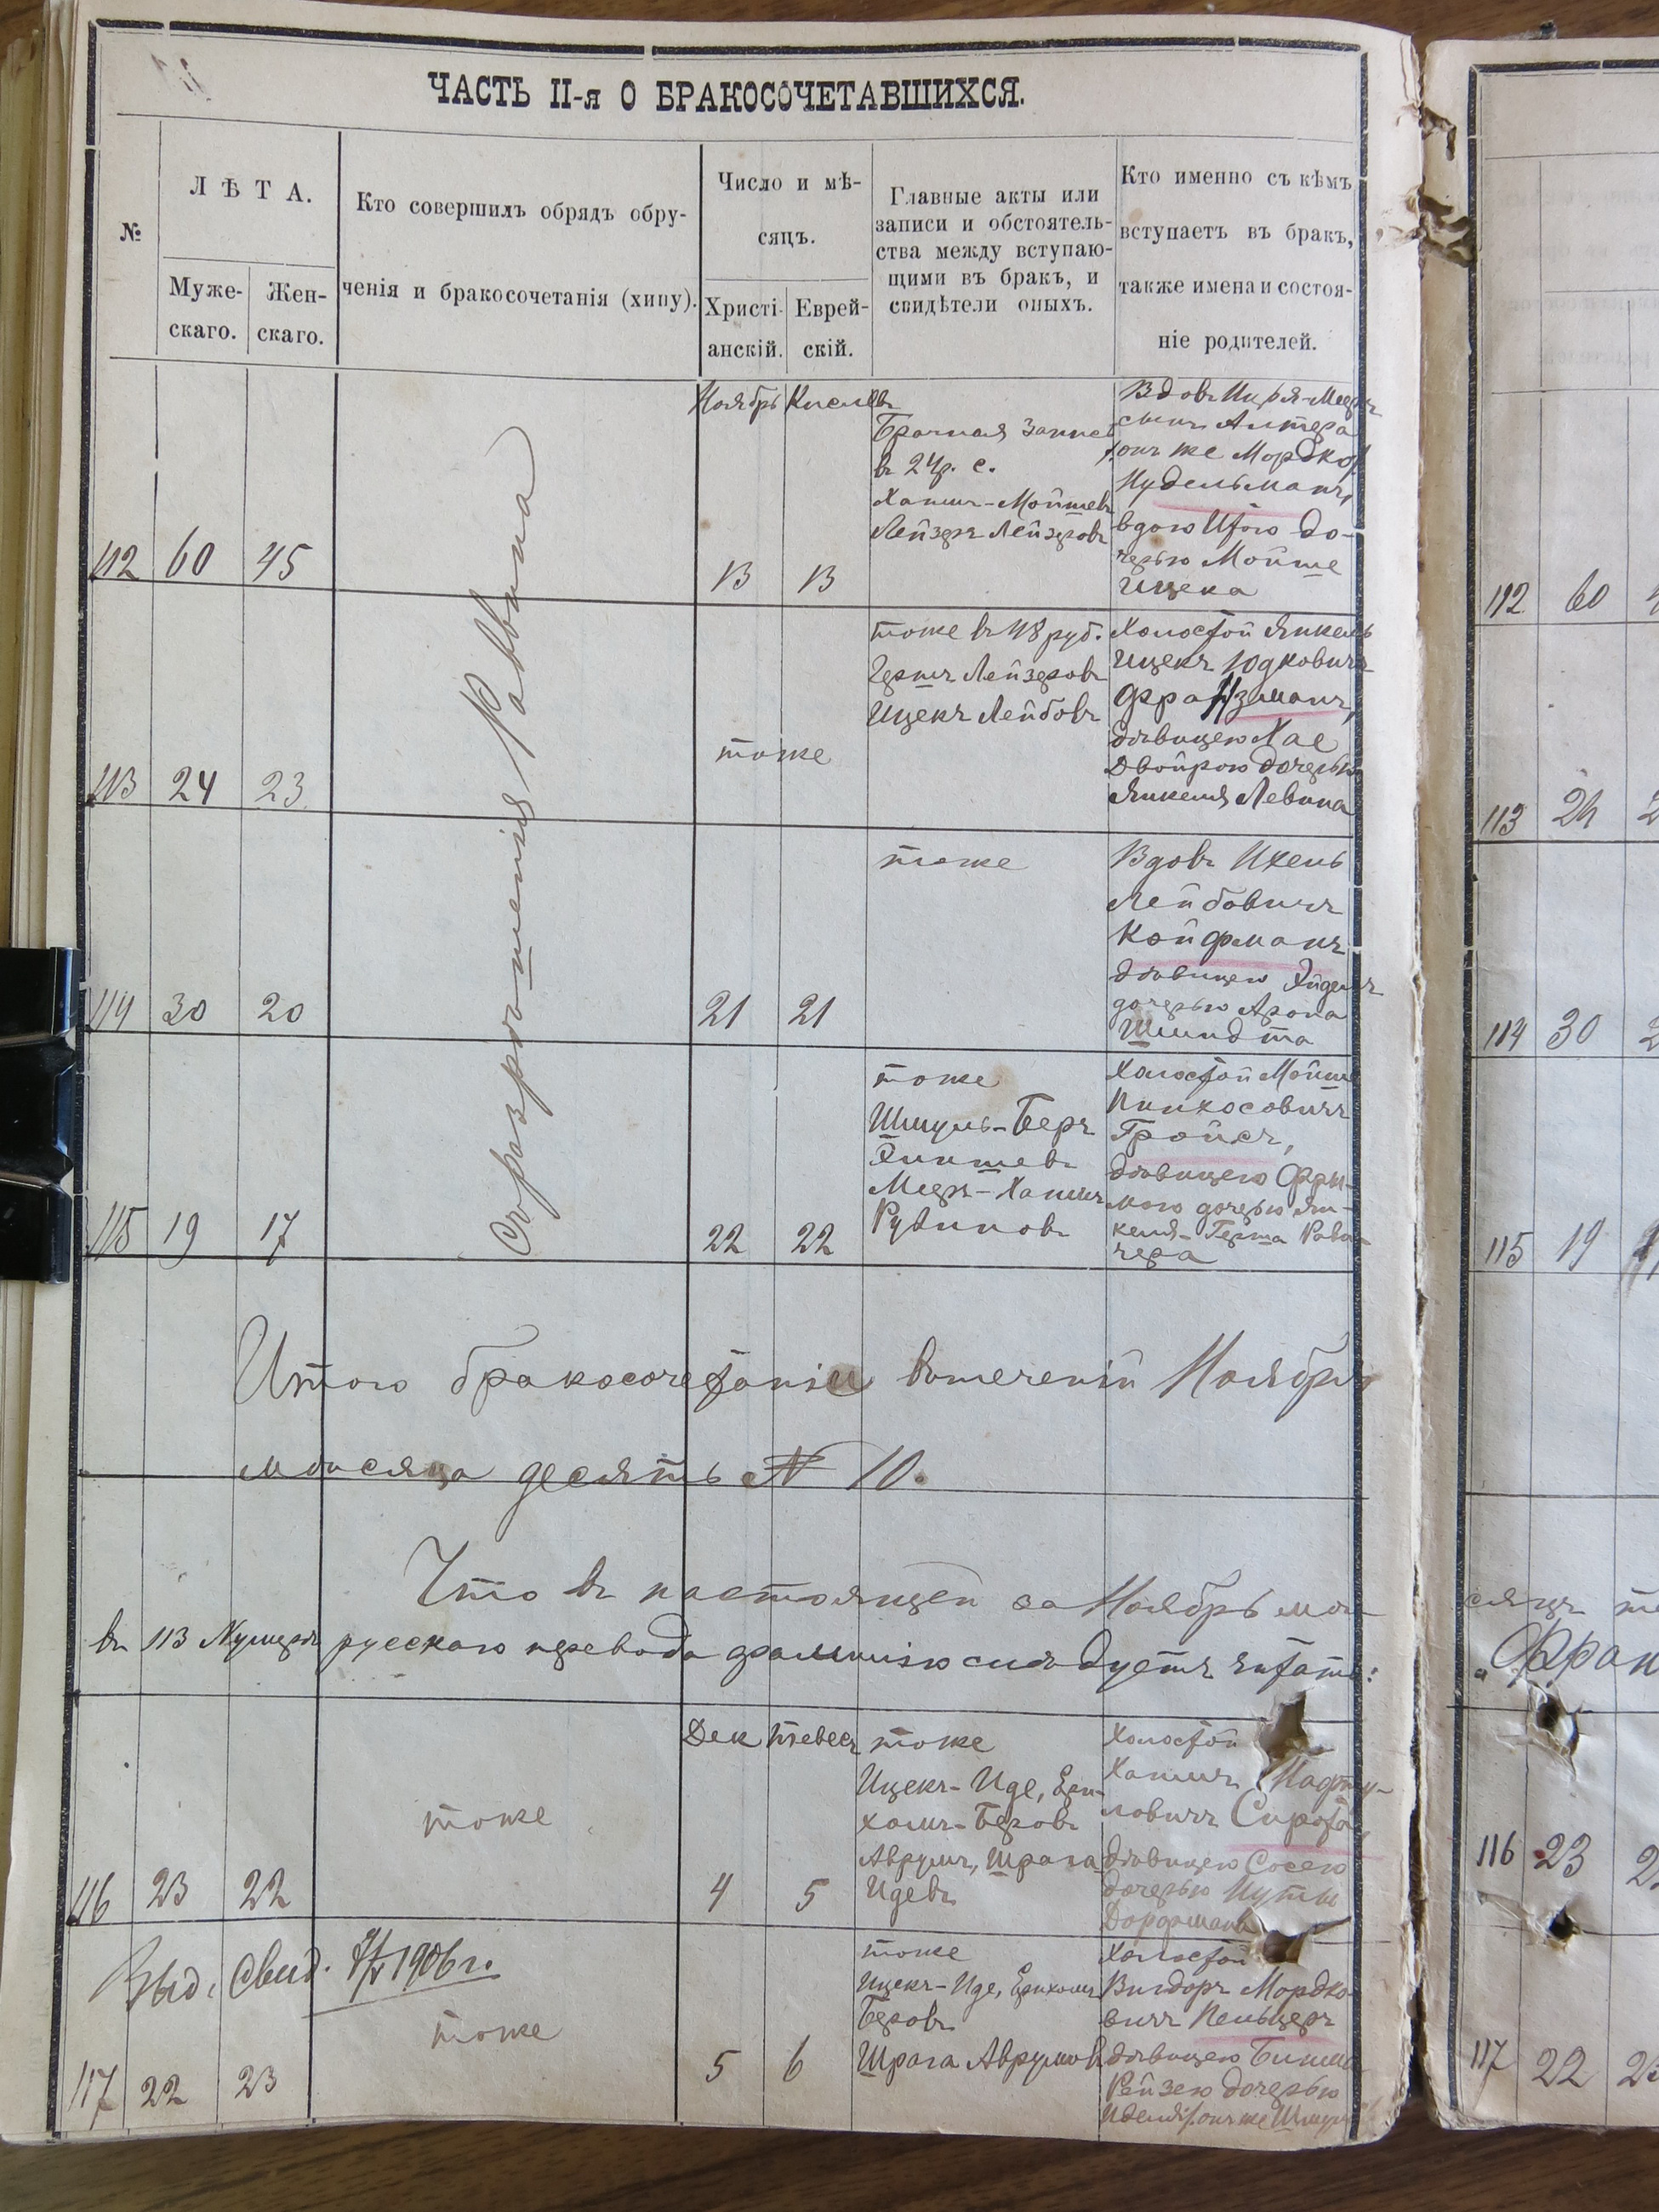 ЧАСТЬ II-я О БРАКОСОЧЕТАВШИХСЯ.
№
ЛѢТА.
Муже-
скаго.
Жен-
скаго.
Кто совершилъ обрядъ обру-
ченія и бракосочетанія (хипу).
Число и мѣ-
сяцъ.
Христі-
анскій.
Еврей-
скій.
Главные акты или
записи и обстоятель-
ства между вступаю-
щими въ бракъ, и
свидѣтели оныхъ.
Кто именно съ кѣмъ
вступаетъ въ бракъ,
также имена и состоя-
ніе родителей.
112 60 45
Раввина
Ноябрь Кислевъ
13 13
Брачная запись
в 24р. с.
Хаимъ-Мойшевъ
Лейзеръ Лейзеровъ
Вдовъ
сынъ Алтера
онъ же Мордко
Нудельманъ,
вдою Итою до-
черью Мойше
Ицека
113 24 23
тоже
тоже въ 48 руб.
Гершъ Лейзеровъ
Ицекъ Лейбовъ
Холостой Янкель
Ицекъ Юдковичъ
Франзманъ,
дѣвицею Хае
Двойрою дочерью
Янкеля Левина
114 30 20
21 21
тоже
Вдовъ Ихель
Лейбовичъ
Койфманъ
дѣвицею
дочерью Арона
Шмидта
115 19 17
22 22
тоже
Шмуль-Беръ
Мееръ-Хаимъ
Рувиновъ
Холостой Мойше
Пинхосовичъ
Гройсъ,
дѣвицею Фри-
мою дочерью Ян-
келя-Герша Рави-
чера
Итого бракосочетаніи втеченіи Ноября
мѣсяца десять № 10.
Что въ настоящей за Ноябрь мѣ-
въ 113 Нумеръ русскаго перевода фамилію слѣдуетъ читать:
116 23 22
тоже
Дек Тевесъ
4 5
тоже
Ицекъ-Иде, Ери-
холмъ-Беровъ
Аврумъ, Шрага
Идевъ
Холостой
Хаимъ Нафту-
ловичъ Сирота,
дѣвицею Сосею
дочерью Нуты
Дорфмана
Выд. Свид. 1906 г.
117 22 23
тоже
5 6
тоже
Ицекъ-Иде, Ерихолмъ
Беровъ
Шрага Аврумовъ
Холостой
Вигдоръ Мордко-
вичъ Пельцеръ
дѣвицею Бинма
Рейзею дочерью
онъ же
112 60
113 24
114 30
115 19
сяцъ
"Фран
116 23
117 22